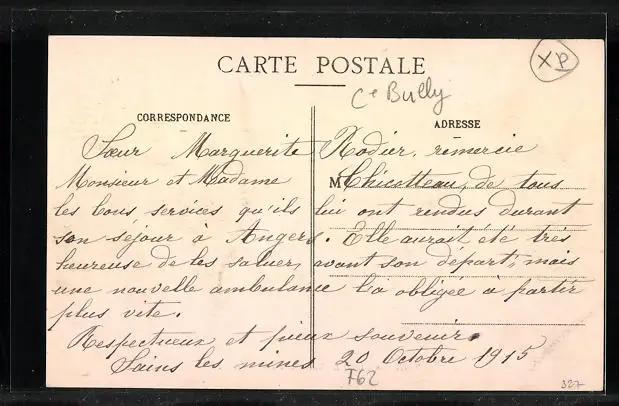 CARTE POSTALE
XP
Ce Bully
CORRESPONDANCE
ADRESSE
Sœur Marguerite Rodier, remercie
Monsieur et Madame M Chicotteau, de tous
les bons services qu'ils lui ont rendus durant
son séjour à Angers. Elle aurait été très
heureuse de les saluer, avant son départ, mais
une nouvelle ambulance l'a obligée à partir
plus vite.
Respectueux et pieux souvenir.
Sains les mines 20 Octobre 1915
F62
327